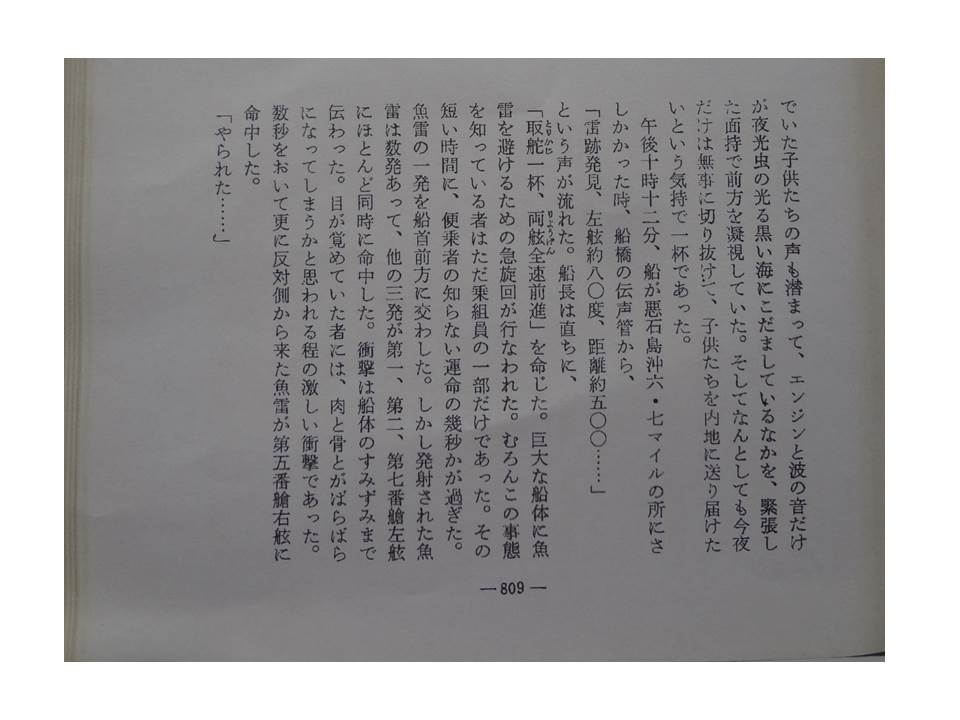 でいた子供たちの声も潜まって、エンジンと波の音だけ
が夜光虫の光る黒い海にこだましているなかを、緊張し
た面持で前方を凝視していた。そしてなんとしても今夜
だけは無事に切り抜けて、子供たちを内地に送り届けた
いという気持で一杯であった。
午後十時十二分、船が悪石島沖六・七マイルの所にさ
しかかった時、船橋の伝声管から、
「雷跡発見、左舷約八〇度、距離約五〇〇……」
という声が流れた。船長は直ちに、
「取舵一杯、両舷全速前進」を命じた。巨大な船体に魚
とりかじ
りょうげん
雷を避けるための急旋回が行なわれた。むろんこの事態
を知っている者はただ乗組員の一部だけであった。その
短い時間に、便乗者の知らない運命の幾秒かが過ぎた。
魚雷の一発を船首前方に交わした。しかし発射された魚
雷は数発あって、他の三発が第一、第二、第七番艙左舷
にほとんど同時に命中した。衝撃は船体のすみずみまで
伝わった。目が覚めていた者には、肉と骨とがばらばら
になってしまうかと思われる程の激しい衝撃であった。
数秒をおいて更に反対側から来た魚雷が第五番艙右舷に
命中した。
「やられた……」
— 809 —